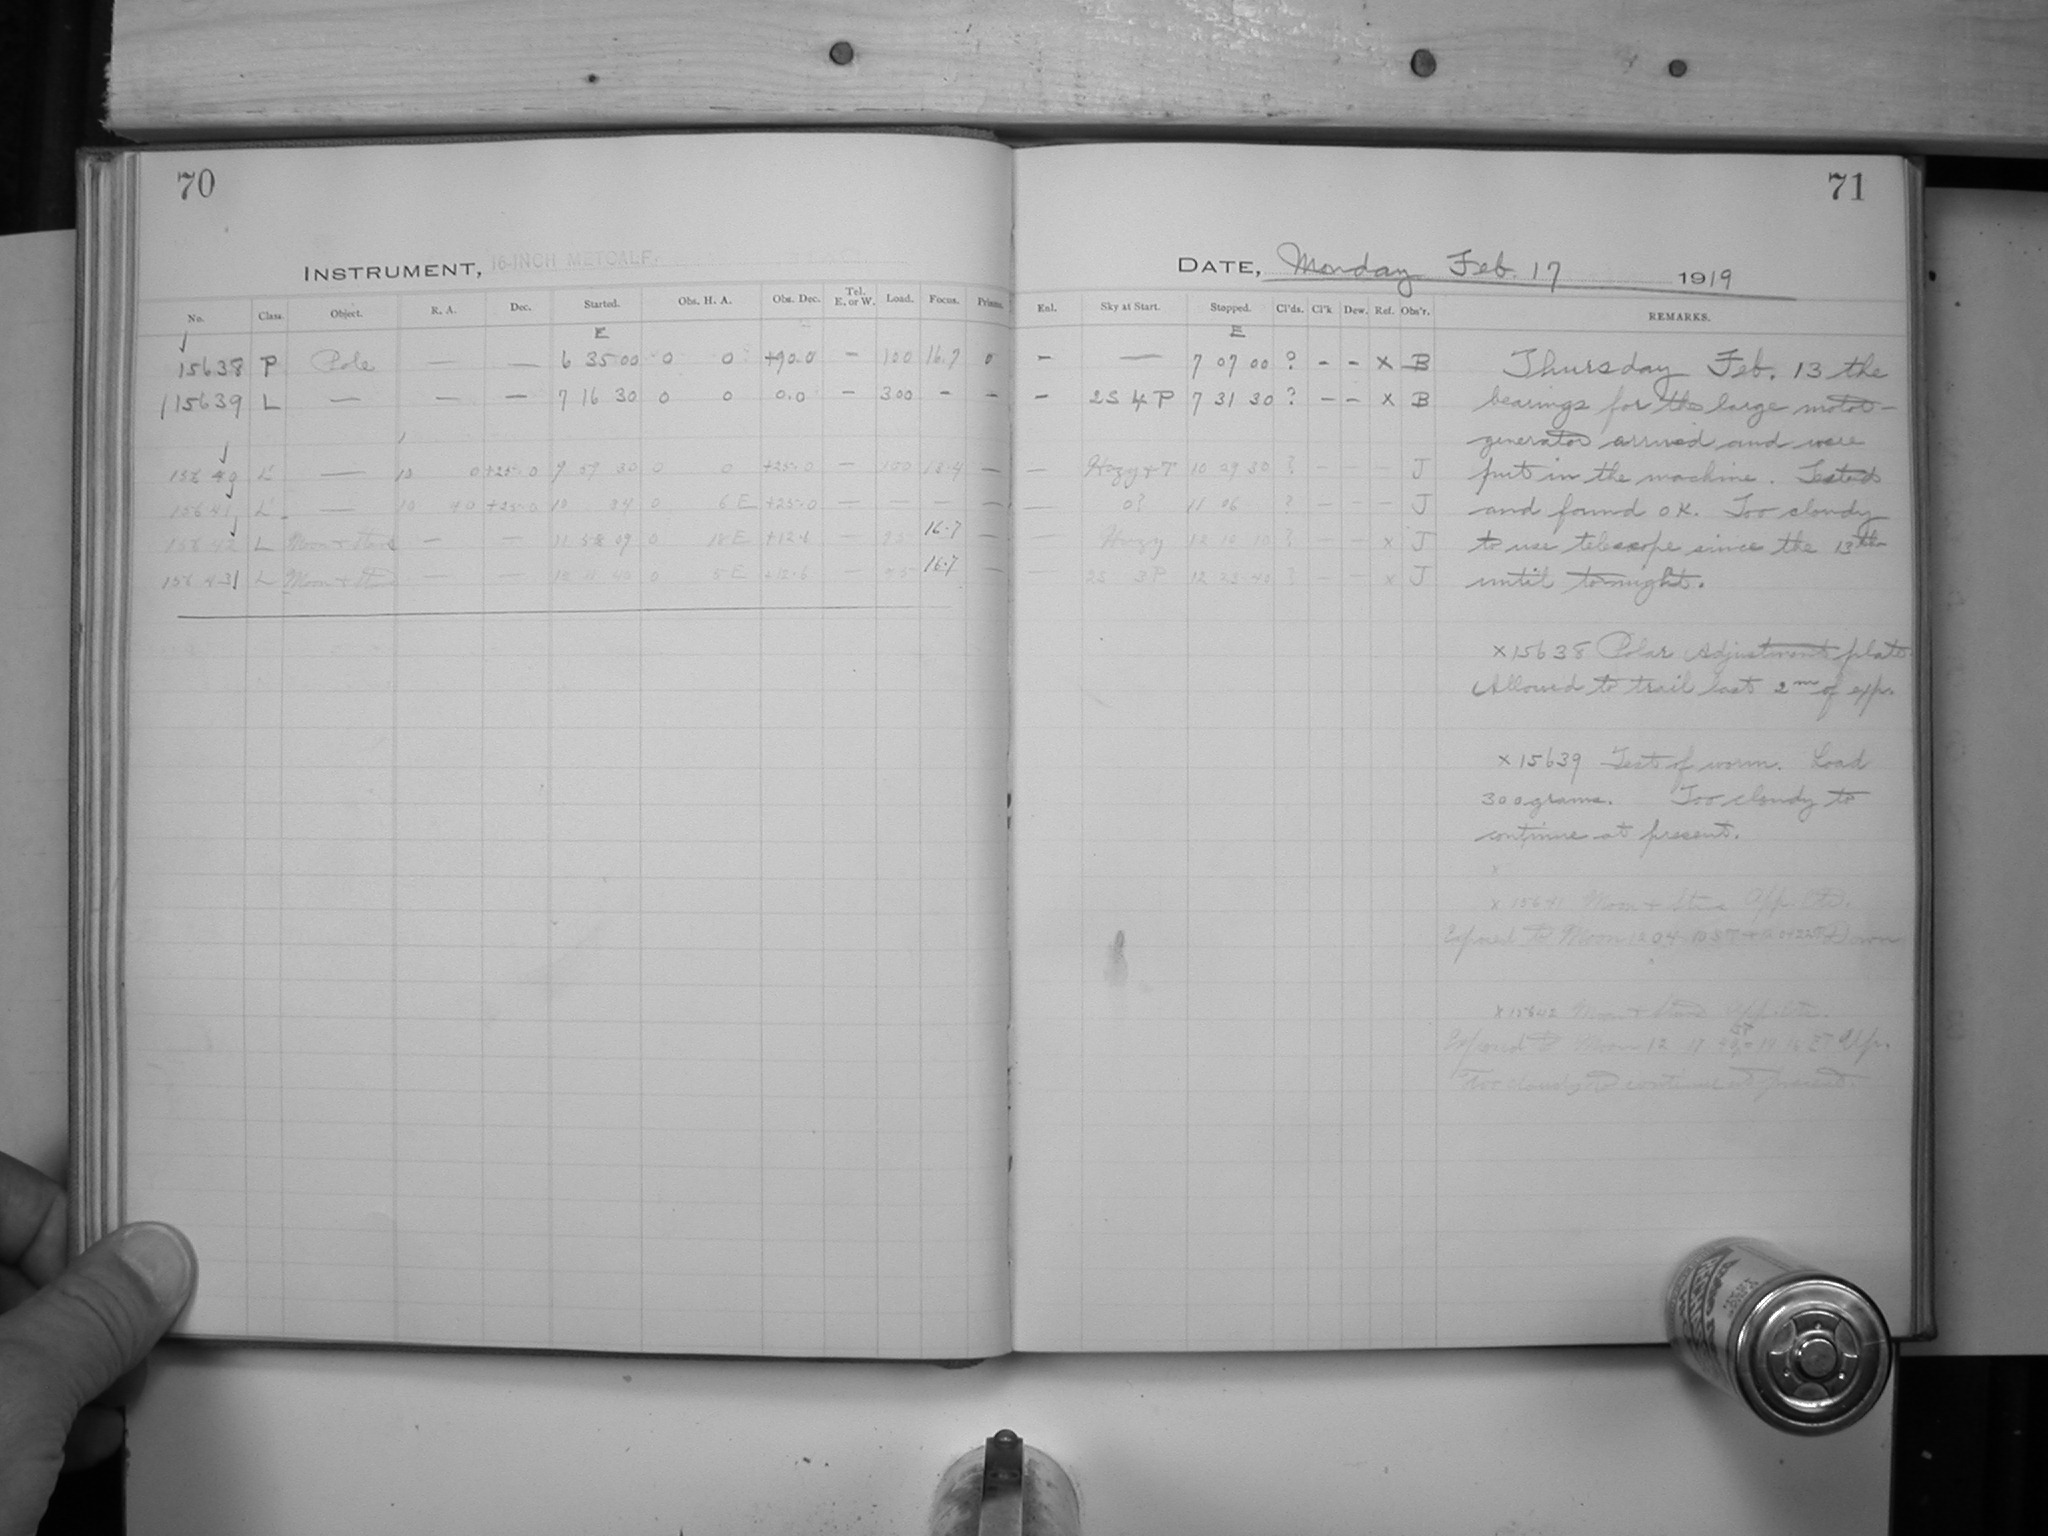 70
71
INSTRUMENT, 16-INCH METCALF.
DATE, Monday Feb. 17 1919
No. Class. Object. R. A. Dec. Started. Obs. H. A. Obs. Dec. Tel. E. or W. Load. Focus. Prisms. Enl. Sky at Start. Stopped. Cl'ds. Cl'k Dew. Ref. Obs'r. REMARKS.
E E
15638 P Pole — — 6 35 00 0 0 +90.0 — 100 16.7 0 — — 7 07 00 ? – – x B
15639 L — — — 7 16 30 0 0 0.0 — 300 – — — 2S 4 P 7 31 30 ? – – x B
L — 10 0 +25.0 9 59 30 0 0 +25.0 — 100 — — Hazy + T 10 29 30 ? – – – J
15641 L — 10 40 +25.0 10 0 6 E +25.0 — — — — — 0? 11 06 ? – – – J
15642 L Moon + Stars — — 11 58 09 0 18 E — 16.7 — — Hazy 12 10 10 ? – – x J
15643 L Moon + Stars — — 0 5 E — 16.7 — — 2S 3 P ? – – x J
Thursday Feb. 13 the
bearings for the large motor-
generator arrived and were
put in the machine. Tested
and found OK. Too cloudy
to use telescope since the 13th
until to-night.
x 15638 Polar Adjustment plate
Allowed to trail last 2m of exp.
x 15639 Test of worm. Load
300 grams. Too cloudy to
continue at present.
x
x 15641 Moon + Stars
Exposed to Moon 12 04 Down
x 15642 Moon + Stars
Exposed to Moon 12 Up.
Too cloudy to continue at present.